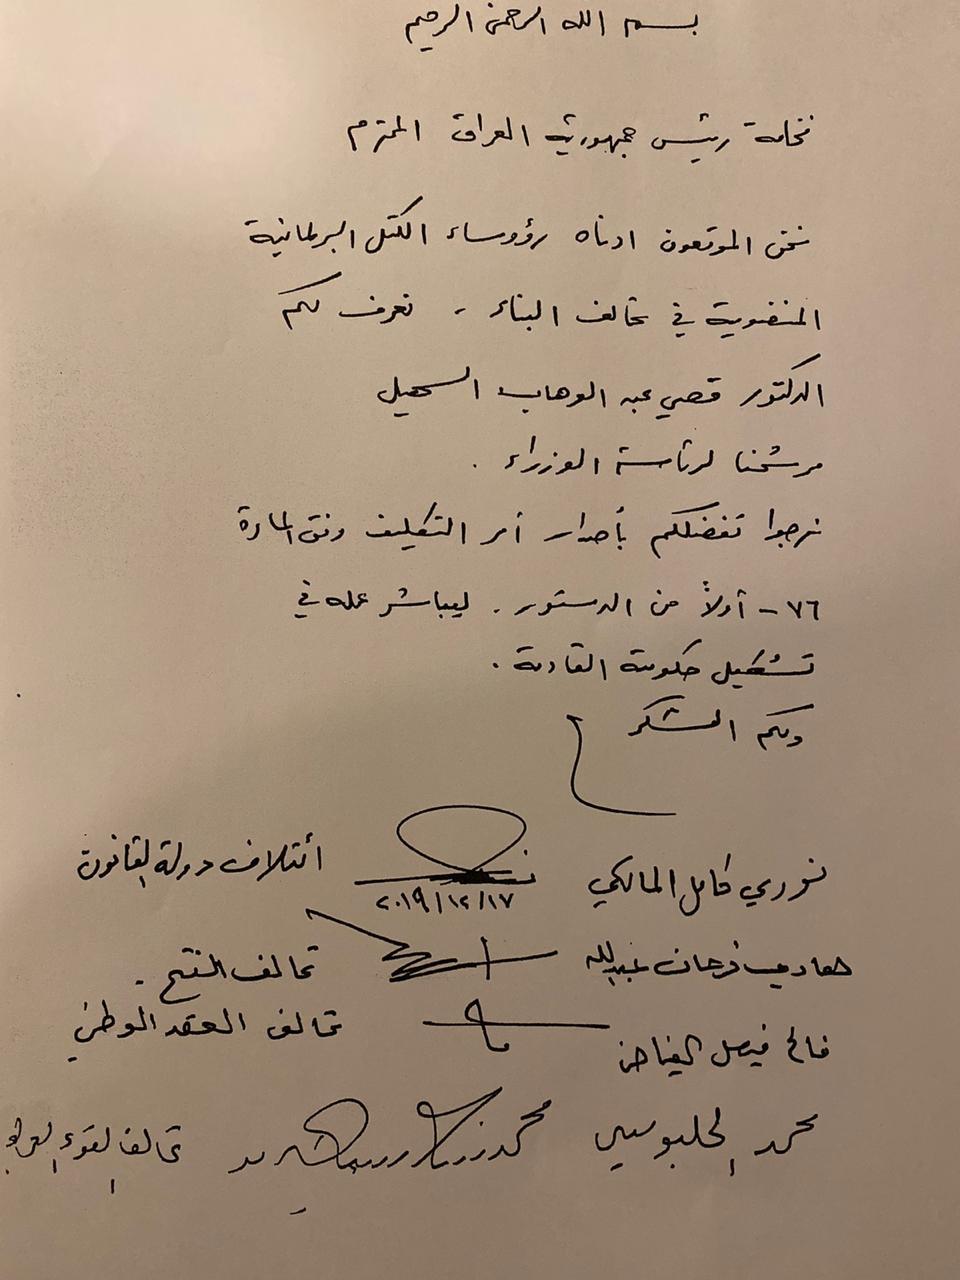 بسم الله الرحمن الرحيم
فخامة رئيس جمهورية العراق المحترم
نحن الموقعون ادناه رؤوساء الكتل البرلمانية
المنضوية في تحالف البناء ، نعرف لكم
الدكتور قصي عبد الوهاب السهيل
مرشحنا لرئاسة الوزراء .
نرجوا تفضلكم بأصدار أمر التكليف وفق المادة
٧٦ - أولاً من الدستور . ليباشر عمله في
تشكيل حكومته القادمة .
ولكم الشكر
نوري كامل المالكي ٢٠١٩/١٢/١٧ أئتلاف دولة القانون
هادي فرحان عبدالله تحالف الفتح .
فالح فيصل الفياض تحالف العقد الوطني
محمد الحلبوسي تحالف القوى